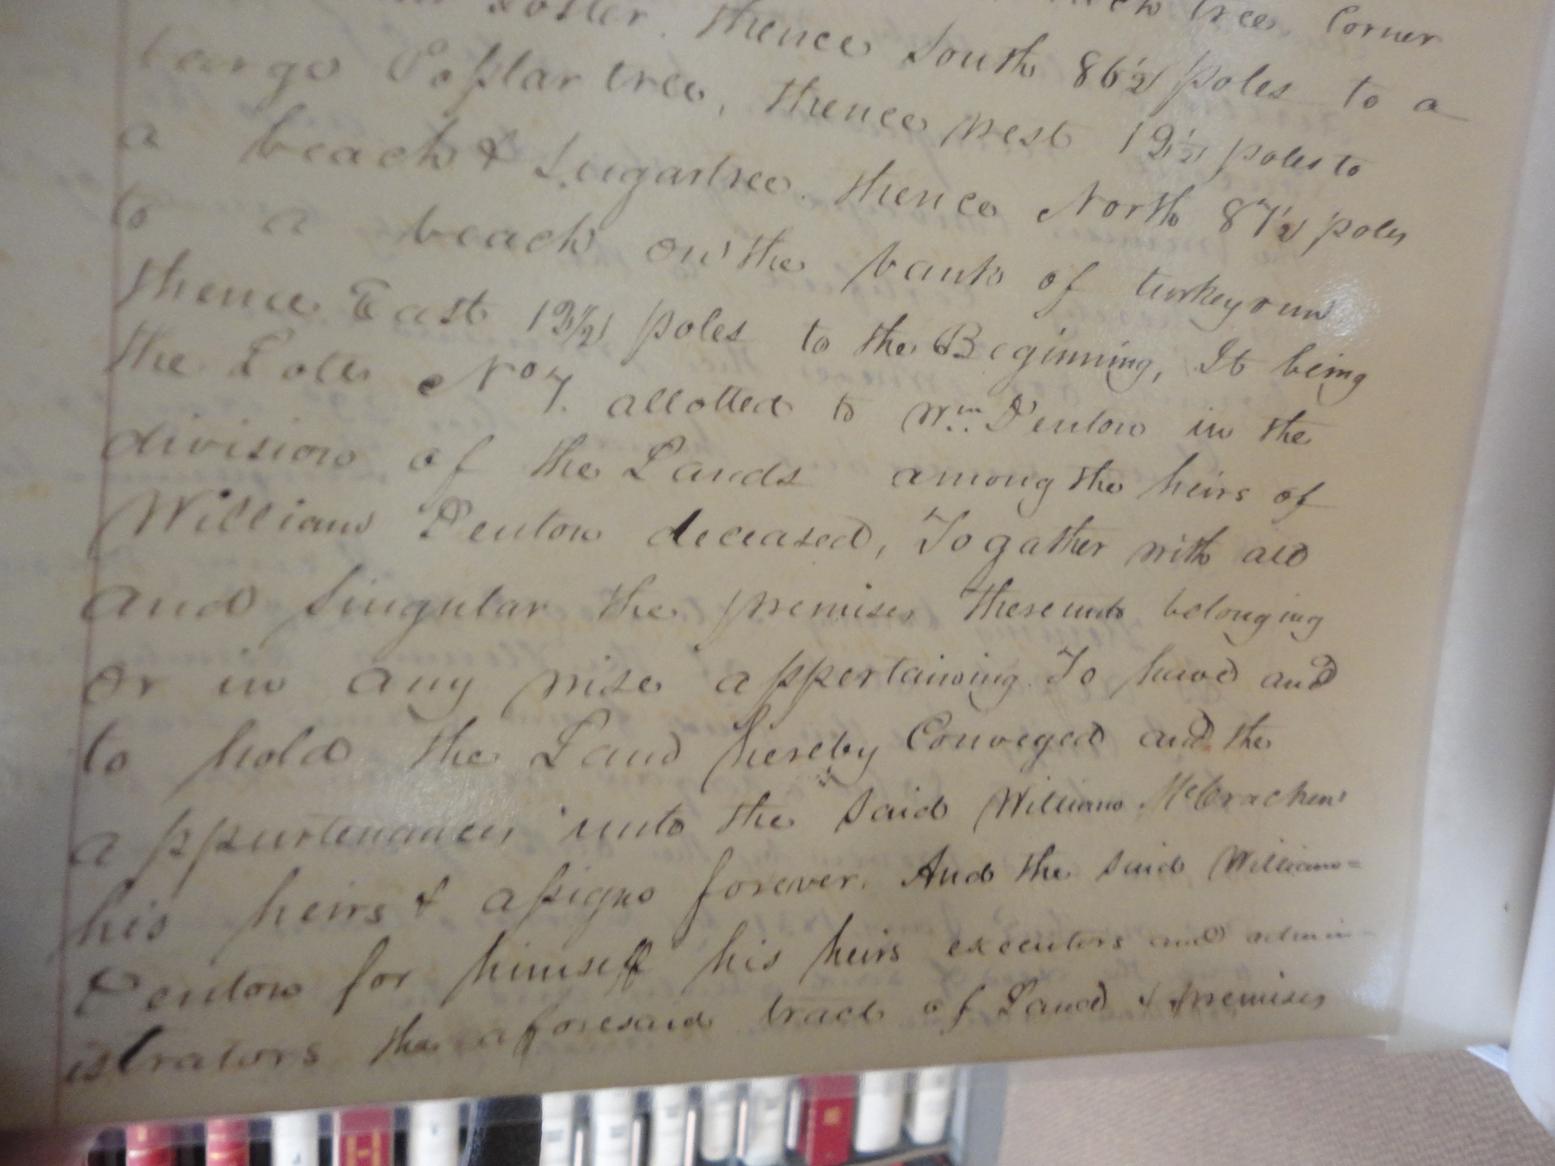 Foster. thence South 86½ poles to a
large Poplar tree, thence west 19½ poles to
a beach & Sugartree. thence North 87½ poles
to a beach on the bank of turkeyrun
thence East 19½ poles to the Beginning, It being
the Lott No 7. allotted to Wm. Denton in the
division of the Lands among the heirs of
William Denton deceased, Togather with all
and Singular the premises thereunto belonging
or in any wise appertaining. To have and
to hold the Land hereby Conveyed and the
appurtenances unto the Said William McCracken
his heirs & assigns forever. And the said William=
Denton for himself his heirs executors and admin-
istrators the aforesaid tract of Land & premises